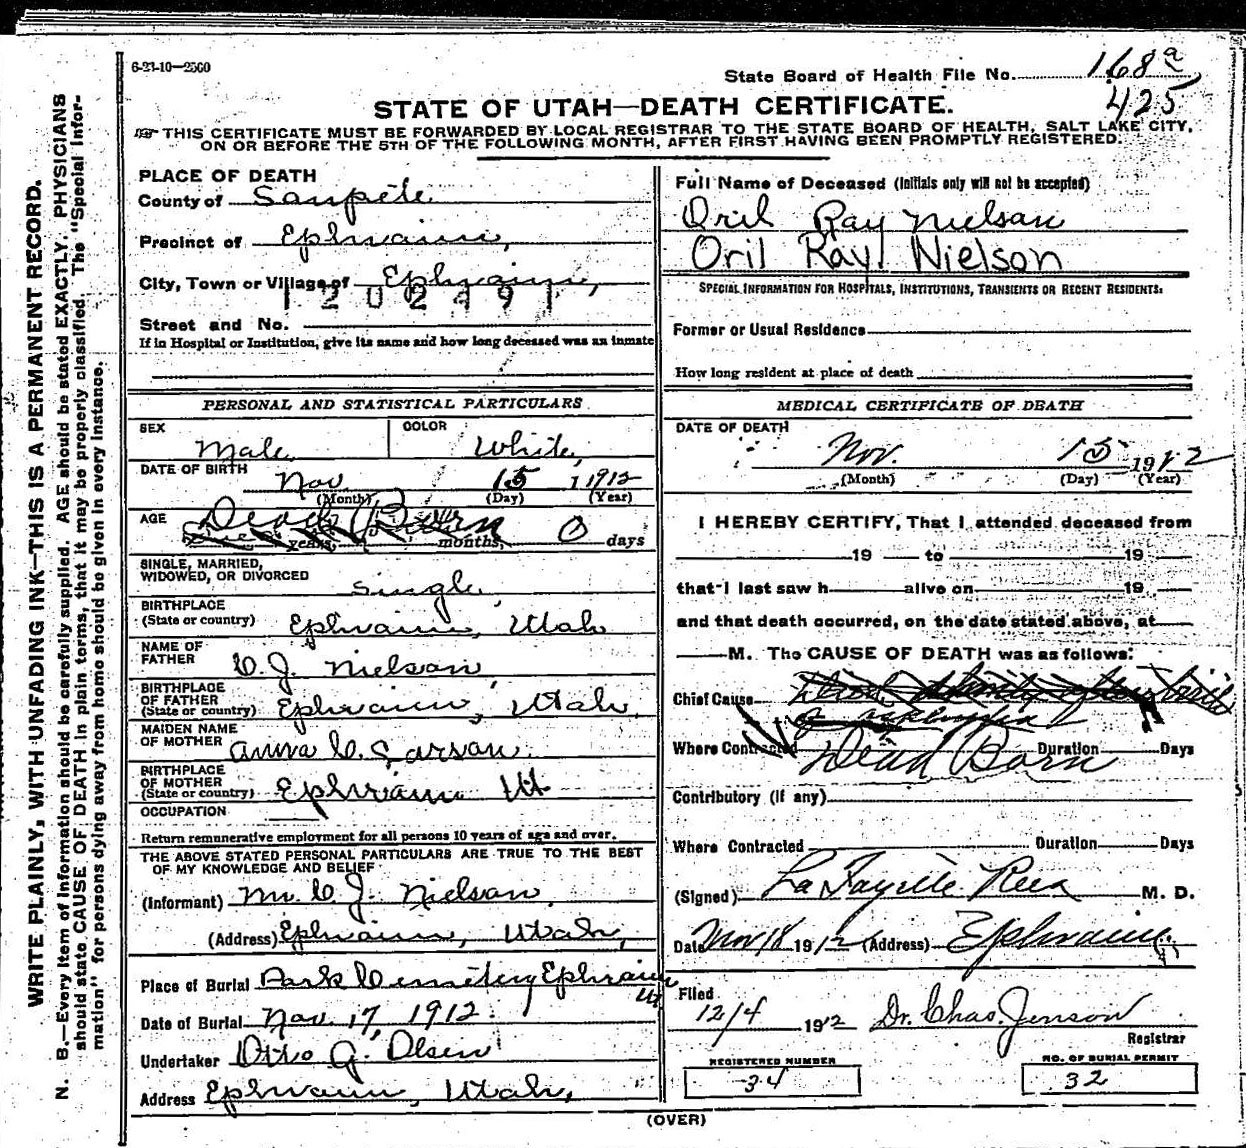 6-23-10—2500
State Board of Health File No. 168a
425
STATE OF UTAH—DEATH CERTIFICATE.
THIS CERTIFICATE MUST BE FORWARDED BY LOCAL REGISTRAR TO THE STATE BOARD OF HEALTH, SALT LAKE CITY,
ON OR BEFORE THE 5TH OF THE FOLLOWING MONTH, AFTER FIRST HAVING BEEN PROMPTLY REGISTERED.
WRITE PLAINLY, WITH UNFADING INK—THIS IS A PERMANENT RECORD.
N. B.—Every item of information should be carefully supplied. AGE should be stated EXACTLY. PHYSICIANS
should state CAUSE OF DEATH in plain terms, that it may be properly classified. The "Special Infor-
mation" for persons dying away from home should be given in every instance.
PLACE OF DEATH
County of Sanpete
Precinct of Ephraim,
City, Town or Village of Ephraim,
1202491
Street and No.
If in Hospital or Institution, give its name and how long deceased was an inmate
PERSONAL AND STATISTICAL PARTICULARS
SEX COLOR
Male White
DATE OF BIRTH
Nov 15 1912
(Month) (Day) (Year)
AGE Dead Born
years, months, 0 days
SINGLE, MARRIED,
WIDOWED, OR DIVORCED Single
BIRTHPLACE
(State or country) Ephraim, Utah
NAME OF
FATHER C. J. Nielson
BIRTHPLACE
OF FATHER
(State or country) Ephraim, Utah
MAIDEN NAME
OF MOTHER Anna C. Larson
BIRTHPLACE
OF MOTHER
(State or country) Ephraim Ut
OCCUPATION
Return remunerative employment for all persons 10 years of age and over.
THE ABOVE STATED PERSONAL PARTICULARS ARE TRUE TO THE BEST
OF MY KNOWLEDGE AND BELIEF
(Informant) Mr. C. J. Nielson
(Address) Ephraim, Utah,
Place of Burial Park Cemetery Ephraim
Ut
Date of Burial Nov. 17, 1912.
Undertaker Otto G. Olsen
Address Ephraim, Utah,
Full Name of Deceased (Initials only will not be accepted)
Oril Ray Nielson
Oril Ray Nielson
SPECIAL INFORMATION FOR HOSPITALS, INSTITUTIONS, TRANSIENTS OR RECENT RESIDENTS:
Former or Usual Residence
How long resident at place of death
MEDICAL CERTIFICATE OF DEATH
DATE OF DEATH
Nov. 15 1912
(Month) (Day) (Year)
I HEREBY CERTIFY, That I attended deceased from
19 to 19
that I last saw h alive on 19
and that death occurred, on the date stated above, at
M. The CAUSE OF DEATH was as follows:
Chief Cause
Where Contracted Dead Born Duration Days
Contributory (if any)
Where Contracted Duration Days
(Signed) La Fayette Rees M. D.
Date Nov 18 1912 (Address) Ephraim
Filed
12/4 1912 Dr. Chas. Jenson
Registrar
REGISTERED NUMBER NO. OF BURIAL PERMIT
34 32
(OVER)